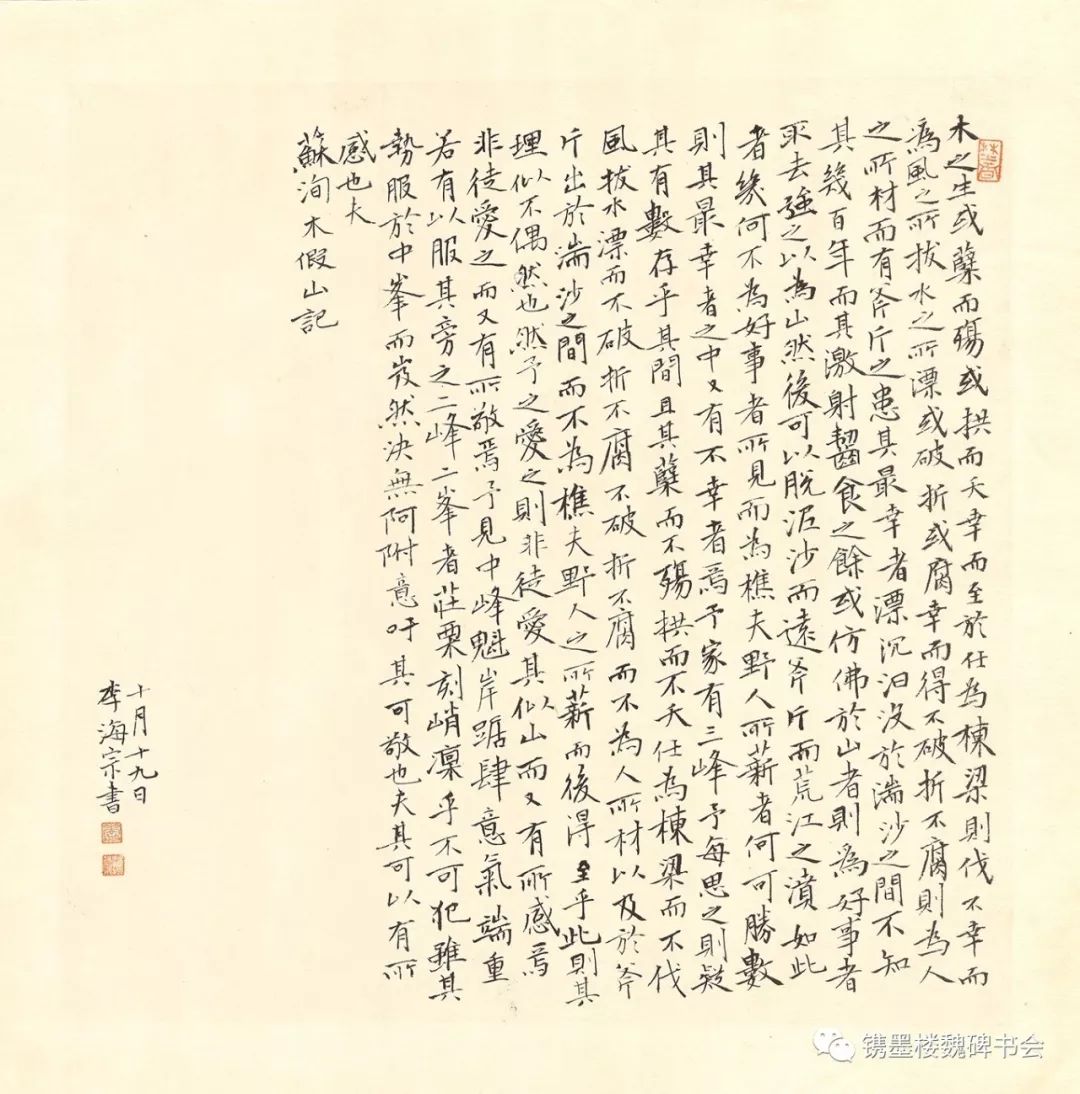 木之生或蘖而殤或拱而夭幸而至於任為棟梁則伐不幸而
為風之所拔水之所漂或破折或腐幸而得不破折不腐則為人
之所材而有斧斤之患其最幸者漂沉汩沒於湍沙之間不知
其幾百年而其激射齧食之餘或仿佛於山者則為好事者
取去強之以為山然後可以脫泥沙而遠斧斤而荒江之濆如此
者幾何不為好事者所見而為樵夫野人所薪者何可勝數
則其最幸者之中又有不幸者焉予家有三峰予每思之則疑
其有數存乎其間且其蘖而不殤拱而不夭任為棟梁而不伐
風拔水漂而不破折不腐不破折不腐而不為人所材以及於斧
斤出於湍沙之間而不為樵夫野人之所薪而後得至乎此則其
理似不偶然也然予之愛之則非徒愛其似山而又有所感焉
非徒愛之而又有所敬焉予見中峰魁岸踞肆意氣端重
若有以服其旁之二峰二峯者莊栗刻峭凜乎不可犯雖其
勢服於中峯而岌然決無阿附意吁其可敬也夫其可以有所
感也夫
蘇洵木假山記
十月十九日
李海宗書
镌墨楼魏碑书会